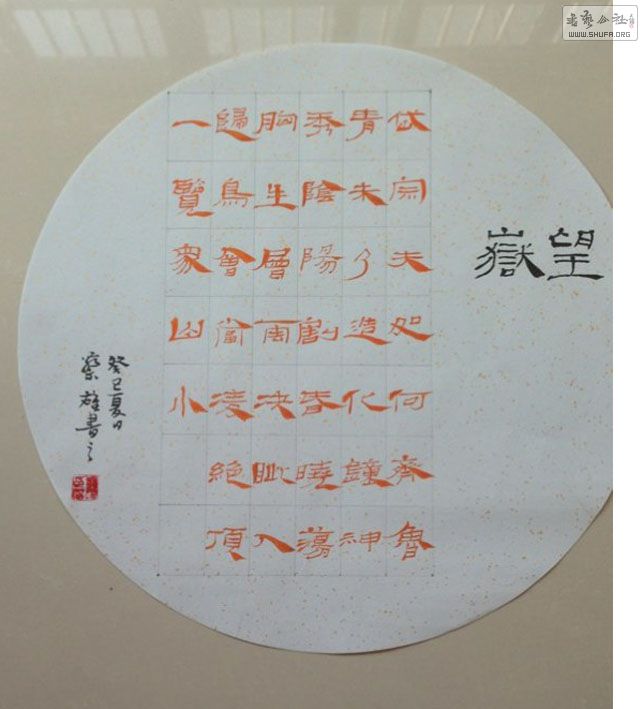 书艺公社
WWW.SHUFA.ORG
望嶽
岱宗夫如何齊魯
青未了造化鐘神
秀陰陽割昏曉蕩
胸生層雲決眦入
歸鳥會當凌絶頂
一覽衆山小
癸巳夏日
雄書之